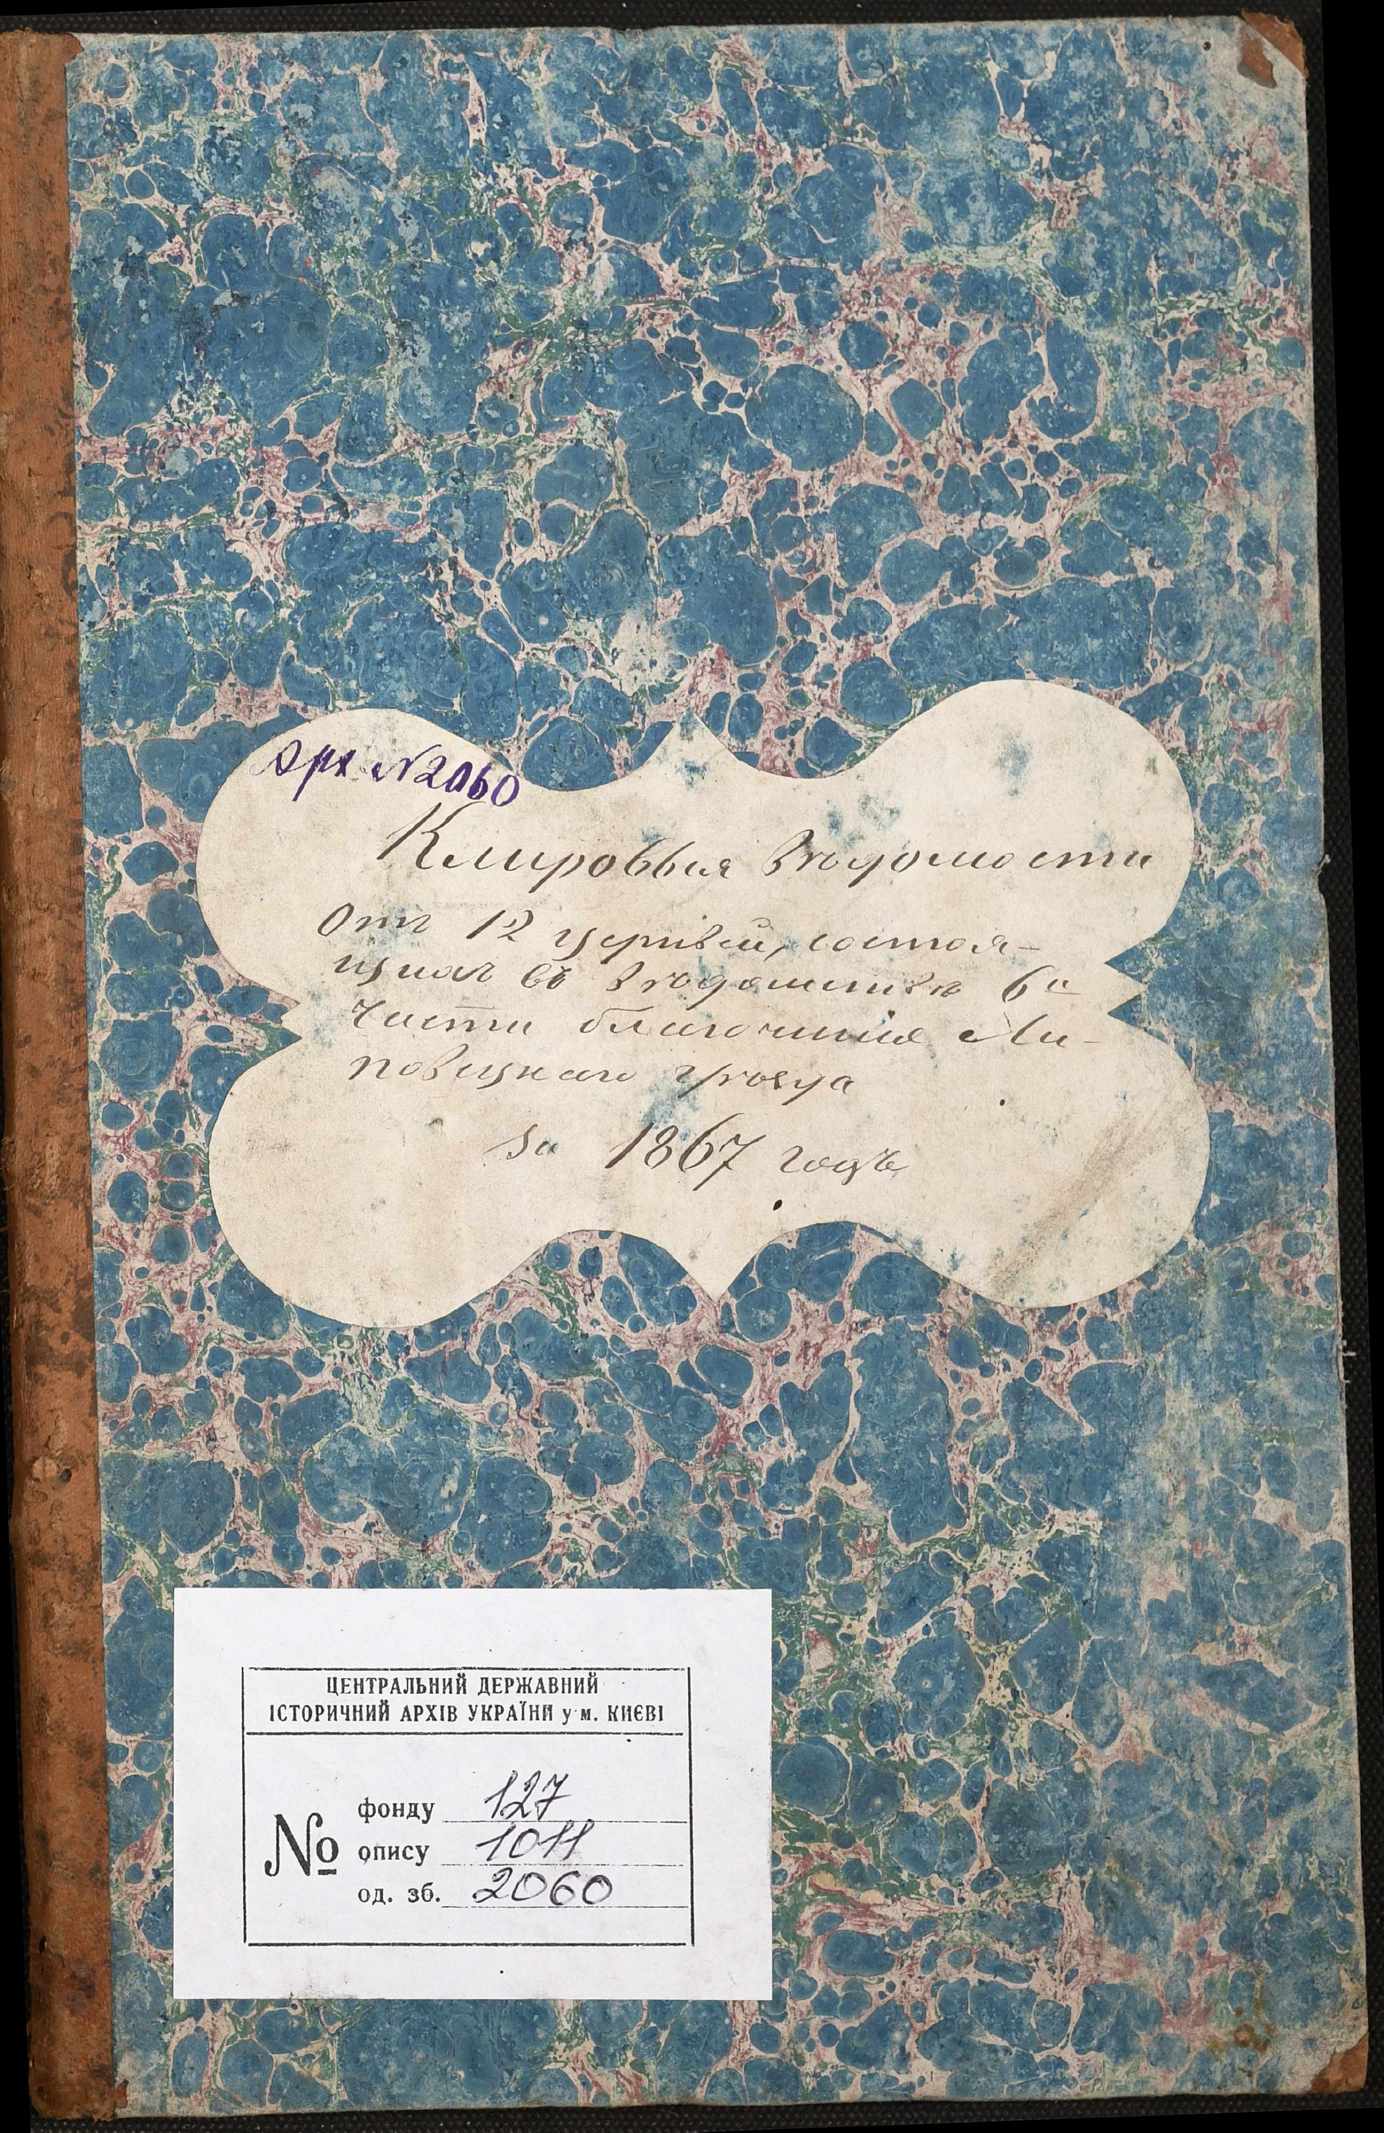 Арх №2060
Клировыя Вѣдомости
Отъ 12 церквей, состоя-
щихъ въ Вѣдомствѣ 6й
Части благочинія Ли-
повецкаго уѣзда
За 1867 годъ
ЦЕНТРАЛЬНИЙ ДЕРЖАВНИЙ
ІСТОРИЧНИЙ АРХІВ УКРАЇНИ у м. КИЄВІ
№
фонду 127
опису 1011
од. зб. 2060